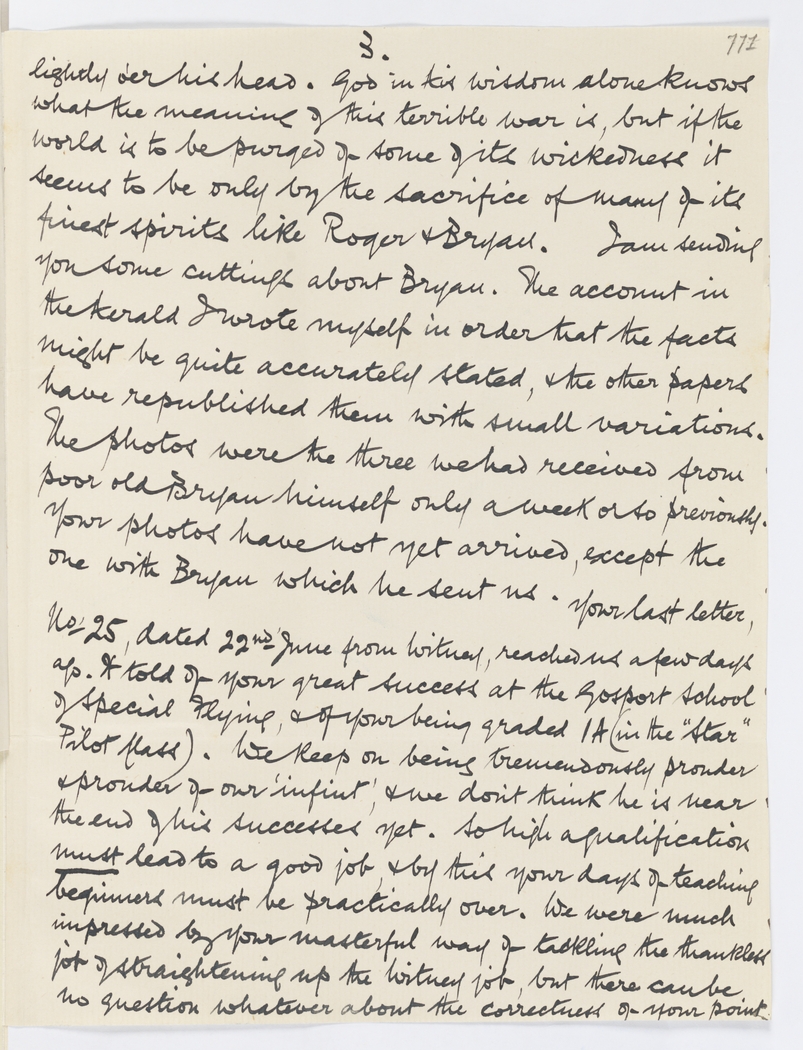 3.
771
lightly o'er his head. God in His wisdom alone knows
what the meaning of this terrible war is, but if the
world is to be purged of some of its wickedness it
seems to be only by the sacrifice of many of its
finest spirits like Roger & Bryan. I am sending
you some cuttings about Bryan. The account in
the Herald I wrote myself in order that the facts
might be quite accurately stated, & the other papers
have republished them with small variations.
The photos were the three we had received from
poor old Bryan himself only a week or so previously.
Your photos have not yet arrived, except the
one with Bryan which he sent us. Your last letter,
No. 25, dated 22nd June from Witney, reached us a few days
ago. It told of your great success at the Gosport School
of Special Flying, & of your being graded 1A (in the "Star"
Pilot Class). We keep on being tremendously prouder
& prouder of our 'infint', & we don't think he is near
the end of his successes yet. So high a qualification
must lead to a good job, & by this your days of teaching
beginners must be practically over. We were much
impressed by your masterful way of tackling the thankless
job of straightening up the Witney job, but there can be
no question whatever about the correctness of your point